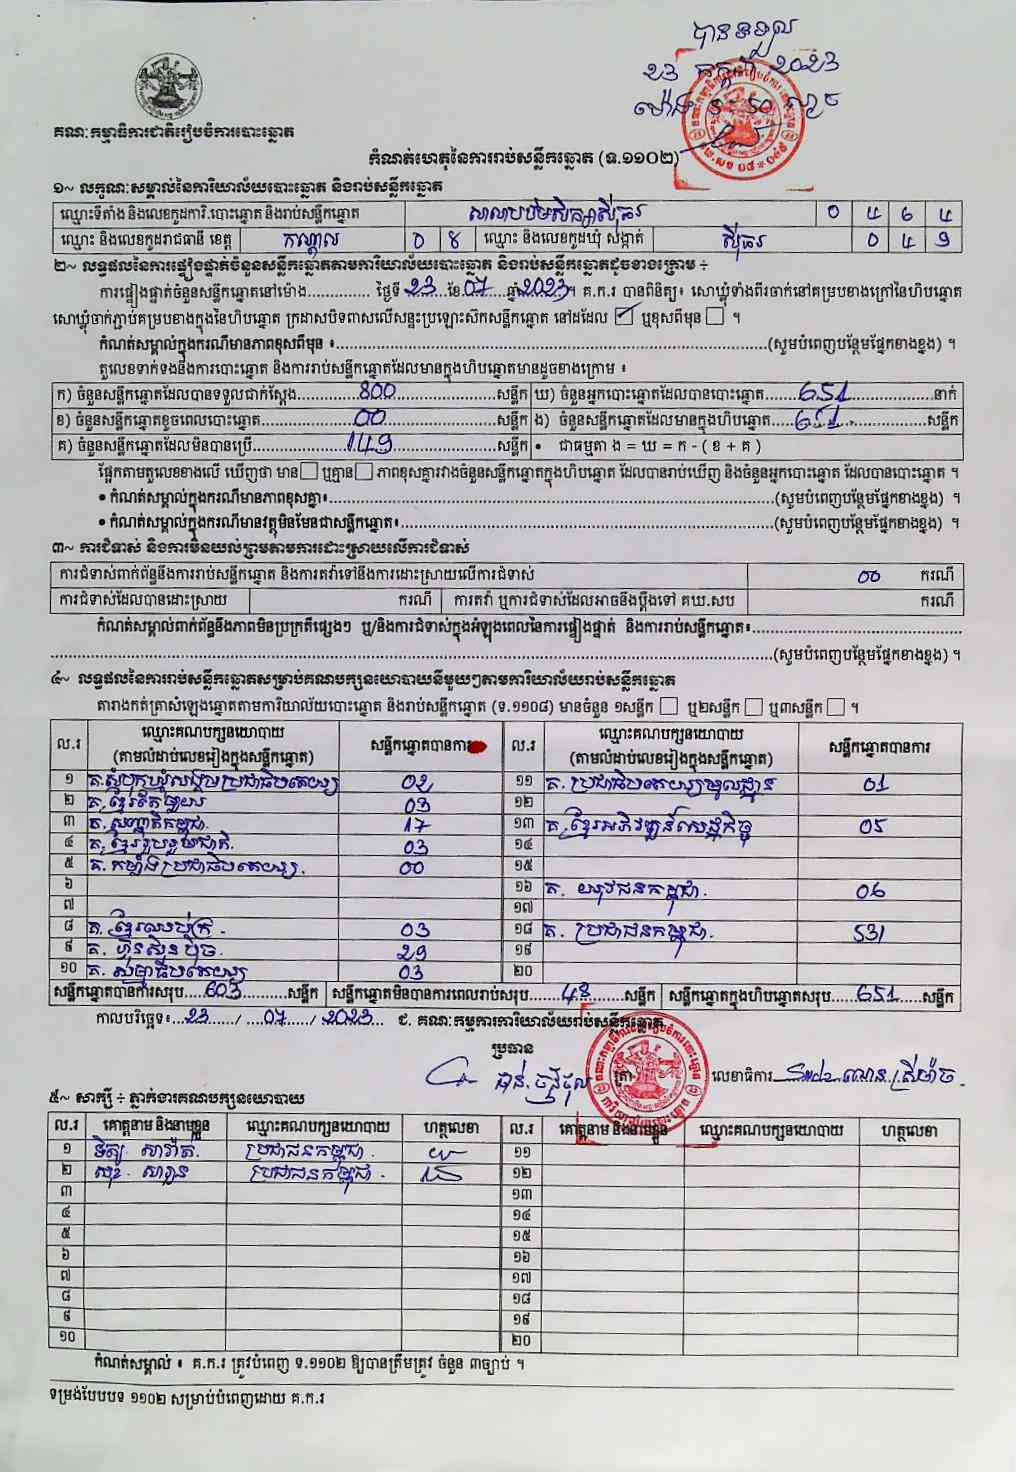 បានទទួល
23 កក្កដា 2023
គណៈកម្មាធិការជាតិរៀបចំការបោះឆ្នោត
កំណត់ហេតុនៃការរាប់សន្លឹកឆ្នោត (ទ.១១០២)
១~ លក្ខណៈសម្គាល់នៃការិយាល័យបោះឆ្នោត និងរាប់សន្លឹកឆ្នោត
ឈ្មោះទីតាំង និងលេខកូដការិ.បោះឆ្នោត និងរាប់សន្លឹកឆ្នោត សាលាបឋមសិក្សាស៊ីធរ 0 ៥ ៦ ៤
ឈ្មោះ និងលេខកូដរាជធានី ខេត្ត កណ្តាល 0 ៨ ឈ្មោះ និងលេខកូដឃុំ សង្កាត់ ស៊ីធរ 0 ៤ ១
២~ លទ្ធផលនៃការផ្ទៀងផ្ទាត់ចំនួនសន្លឹកឆ្នោតតាមការិយាល័យបោះឆ្នោត និងរាប់សន្លឹកឆ្នោតដូចខាងក្រោម ÷
ការផ្ទៀងផ្ទាត់ចំនួនសន្លឹកឆ្នោតនៅម៉ោង.............. ថ្ងៃទី 23 ខែ 07 ឆ្នាំ 2023 ។ គ.ក.រ បានពិនិត្យ៖ សោឃ្លុំទាំងពីរចាក់នៅគម្របខាងក្រៅនៃហិបឆ្នោត
សោឃ្លុំចាក់ភ្ជាប់គម្របខាងក្នុងនៃហិបឆ្នោត ក្រដាសបិទពាសលើសន្ទះប្រឡោះស៊កសន្លឹកឆ្នោត នៅដដែល ☑ ឬខុសពីមុន ☐ ។
កំណត់សម្គាល់ក្នុងករណីមានភាពខុសពីមុន ៖..............(សូមបំពេញបន្ថែមផ្នែកខាងខ្នង) ។
តួលេខទាក់ទងនឹងការបោះឆ្នោត និងការរាប់សន្លឹកឆ្នោតដែលមានក្នុងហិបឆ្នោតមានដូចខាងក្រោម ៖
ក) ចំនួនសន្លឹកឆ្នោតដែលបានទទួលជាក់ស្តែង 800 សន្លឹក ឃ) ចំនួនអ្នកបោះឆ្នោតដែលបានបោះឆ្នោត 651 នាក់
ខ) ចំនួនសន្លឹកឆ្នោតខូចពេលបោះឆ្នោត 00 សន្លឹក ង) ចំនួនសន្លឹកឆ្នោតដែលមានក្នុងហិបឆ្នោត 651 សន្លឹក
គ) ចំនួនសន្លឹកឆ្នោតដែលមិនបានប្រើ 149 សន្លឹក • ជាធម្មតា ង = ឃ = ក - ( ខ + គ )
ផ្អែកតាមតួលេខខាងលើ ឃើញថា មាន ☐ ឬគ្មាន ☐ ភាពខុសគ្នារវាងចំនួនសន្លឹកឆ្នោតក្នុងហិបឆ្នោត ដែលបានរាប់ឃើញ និងចំនួនអ្នកបោះឆ្នោត ដែលបានបោះឆ្នោត ។
• កំណត់សម្គាល់ក្នុងករណីមានភាពខុសគ្នា៖..............(សូមបំពេញបន្ថែមផ្នែកខាងខ្នង) ។
• កំណត់សម្គាល់ក្នុងករណីមានវត្ថុមិនមែនជាសន្លឹកឆ្នោត៖..............(សូមបំពេញបន្ថែមផ្នែកខាងខ្នង) ។
៣~ ការជំទាស់ និងការមិនយល់ព្រមតាមការដោះស្រាយលើការជំទាស់
ការជំទាស់ពាក់ព័ន្ធនឹងការរាប់សន្លឹកឆ្នោត និងការតវ៉ាទៅនឹងការដោះស្រាយលើការជំទាស់ 00 ករណី
ការជំទាស់ដែលបានដោះស្រាយ ករណី ការតវ៉ា ឬការជំទាស់ដែលអាចនឹងប្តឹងទៅ គឃ.សប ករណី
កំណត់សម្គាល់ពាក់ព័ន្ធនឹងភាពមិនប្រក្រតីផ្សេងៗ ឬ/និងការជំទាស់ក្នុងអំឡុងពេលនៃការផ្ទៀងផ្ទាត់ និងការរាប់សន្លឹកឆ្នោត៖..............
..............(សូមបំពេញបន្ថែមផ្នែកខាងខ្នង) ។
៤~ លទ្ធផលនៃការរាប់សន្លឹកឆ្នោតសម្រាប់គណបក្សនយោបាយនីមួយៗតាមការិយាល័យរាប់សន្លឹកឆ្នោត
តារាងកត់ត្រាសំឡេងឆ្នោតតាមការិយាល័យបោះឆ្នោត និងរាប់សន្លឹកឆ្នោត (ទ.១១០៨) មានចំនួន ១សន្លឹក ☐ ឬ២សន្លឹក ☐ ឬ៣សន្លឹក ☐ ។
ល.រ ឈ្មោះគណបក្សនយោបាយ (តាមលំដាប់លេខរៀងក្នុងសន្លឹកឆ្នោត) សន្លឹកឆ្នោតបានការ ល.រ ឈ្មោះគណបក្សនយោបាយ (តាមលំដាប់លេខរៀងក្នុងសន្លឹកឆ្នោត) សន្លឹកឆ្នោតបានការ
១ គ.សំបុកឃ្មុំសង្គមប្រជាធិបតេយ្យ 02 ១១ គ. ប្រជាធិបតេយ្យមូលដ្ឋាន 01
២ គ. ខ្មែរតែមួយ 03 ១២
៣ គ. សញ្ជាតិកម្ពុជា. 17 ១៣ គ. ខ្មែរអភិវឌ្ឍន៍សេដ្ឋកិច្ច 05
៤ គ. ខ្មែររួបរួមជាតិ. 03 ១៤
៥ គ. កម្លាំងប្រជាធិបតេយ្យ. 00 ១៥
៦ ១៦ គ. យុវជនកម្ពុជា. 06
៧ ១៧
៨ គ. ខ្មែរឈប់ក្រ. 03 ១៨ គ. ប្រជាជនកម្ពុជា. 531
៩ គ. ហ៊្វុនស៊ិនប៉ិច 29 ១៩
១០ គ. សម្មាធិបតេយ្យ 03 ២០
សន្លឹកឆ្នោតបានការសរុប 603 សន្លឹក សន្លឹកឆ្នោតមិនបានការពេលរាប់សរុប 48 សន្លឹក សន្លឹកឆ្នោតក្នុងហិបឆ្នោតសរុប 651 សន្លឹក
កាលបរិច្ឆេទ៖ 23 / 07 / 2023 ជ. គណៈកម្មការការិយាល័យរាប់សន្លឹកឆ្នោត
ប្រធាន
លេខាធិការ
៥~ សាក្សី ÷ ភ្នាក់ងារគណបក្សនយោបាយ
ល.រ គោត្តនាម និងនាមខ្លួន ឈ្មោះគណបក្សនយោបាយ ហត្ថលេខា ល.រ គោត្តនាម និងនាមខ្លួន ឈ្មោះគណបក្សនយោបាយ ហត្ថលេខា
១ ប្រជាជនកម្ពុជា. ១១
២ ប្រជាជនកម្ពុជា. ១២
៣ ១៣
៤ ១៤
៥ ១៥
៦ ១៦
៧ ១៧
៨ ១៨
៩ ១៩
១០ ២០
កំណត់សម្គាល់ ៖ គ.ក.រ ត្រូវបំពេញ ទ.១១០២ ឱ្យបានត្រឹមត្រូវ ចំនួន ៣ច្បាប់ ។
ទម្រង់បែបបទ ១១០២ សម្រាប់បំពេញដោយ គ.ក.រ